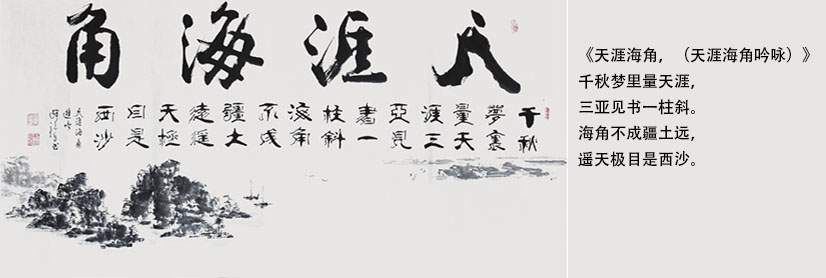 天涯海角
千秋
夢裏
量天
涯三
亞見
書一
柱斜
海角
不成
疆土
遠遥
天極
目是
西沙
天涯海角
《天涯海角，（天涯海角吟咏）》
千秋梦里量天涯，
三亚见书一柱斜。
海角不成疆土远，
遥天极目是西沙。